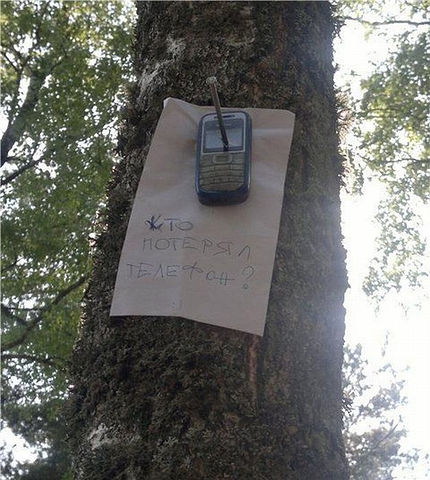 КТО
ПОТЕРЯЛ
ТЕЛЕФОН?